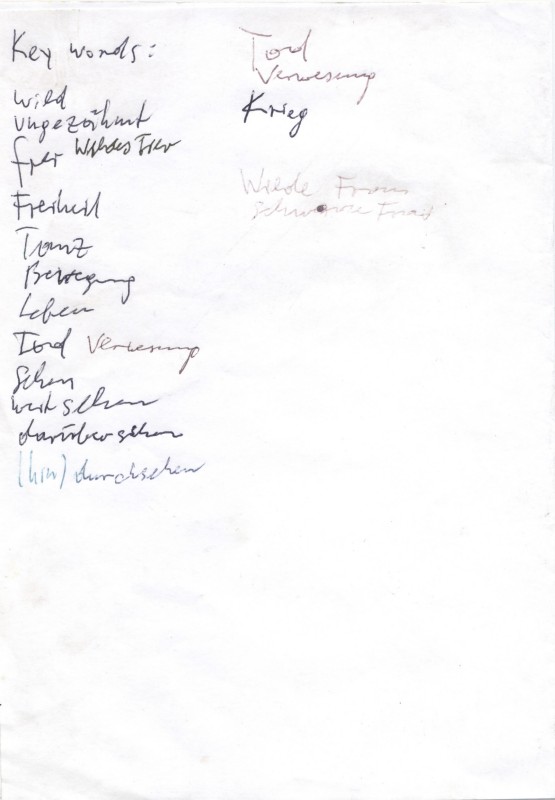 Key words:
wild
ungezähmt
frei Wildes Tier
Freiheit
Tanz
Bewegung
Leben
Tod Verwesung
Sehen
weit sehen
darüber sehen
(hin) durchsehen
Tod
Verwesung
Krieg
Wilde Frau
Schwarze Frau